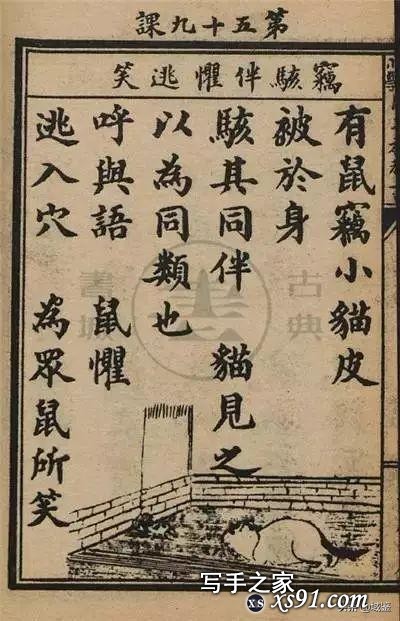 第五十九課
竊駭伴懼逃笑
有鼠竊小貓皮
被於身
駭其同伴 貓見之
以為同類也
呼與語 鼠懼
逃入穴 為眾鼠所笑
古典
書城
写手之家
xs xs91.com